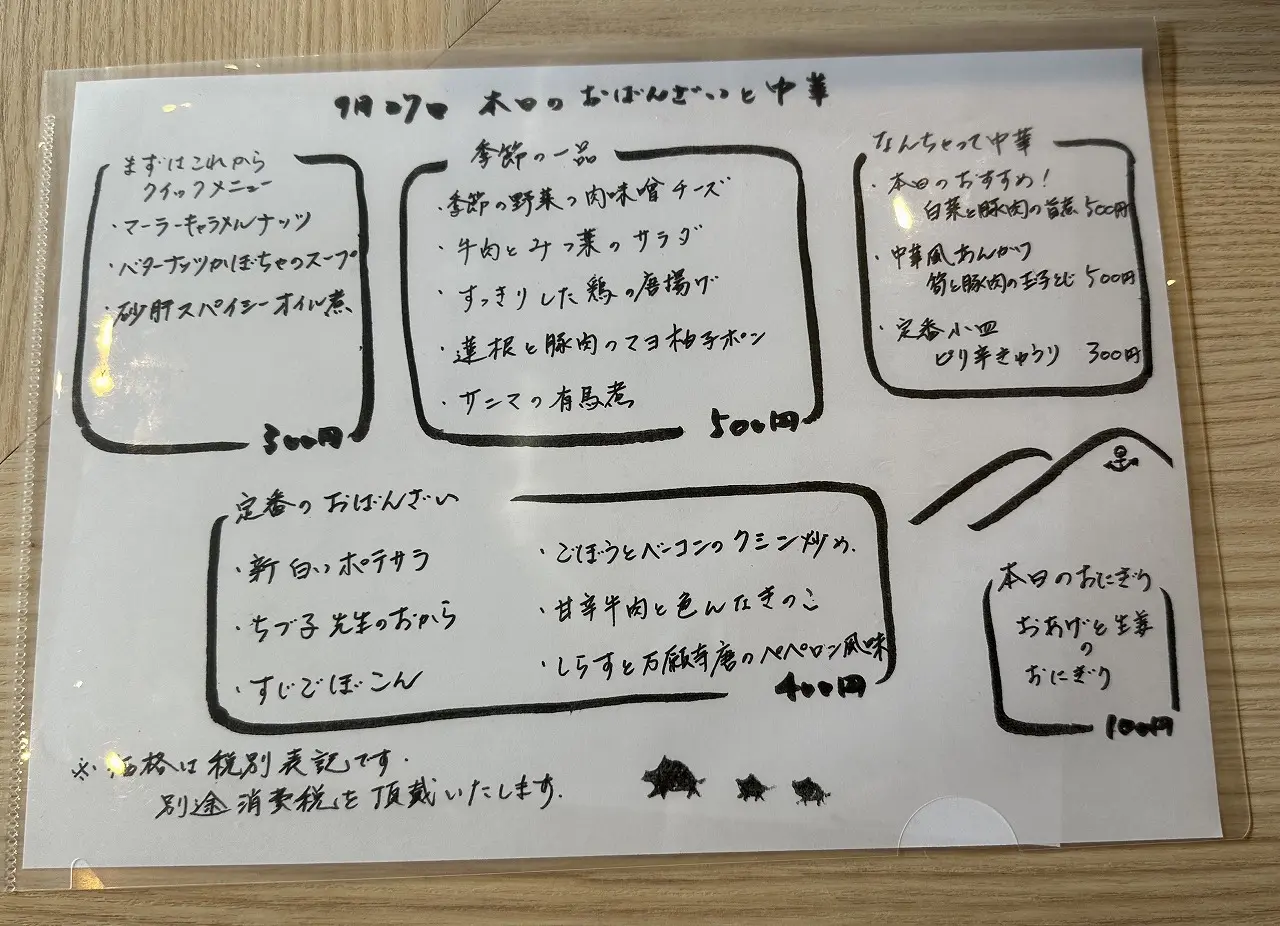 9月27日 本日のおばんざいと中華
まずはこれから
クイックメニュー
・マーラーキャラメルナッツ
・バターナッツかぼちゃのスープ
・砂肝スパイシーオイル煮
300円
季節の一品
・季節の野菜の肉味噌チーズ
・牛肉とみつ葉のサラダ
・すっきりした鶏の唐揚げ
・蓮根と豚肉のマヨ柚子ポン
・サンマの有馬煮
500円
なんちゃって中華
・本日のおすすめ!
白菜と豚肉の旨煮 500円
・中華風あんかけ
筍と豚肉の玉子とじ 500円
・定番小皿
ピリ辛きゅうり 300円
定番のおばんざい
・新 白いポテサラ
・ちづ子先生のおから
・すじごぼこん
・ごぼうとベーコンのクミン炒め
・甘辛牛肉と色んなきのこ
・しらすと万願寺唐のペペロン風味
400円
本日のおにぎり
おあげと生姜
の
おにぎり
100円
※価格は税別表記です.
別途消費税を頂戴いたします.